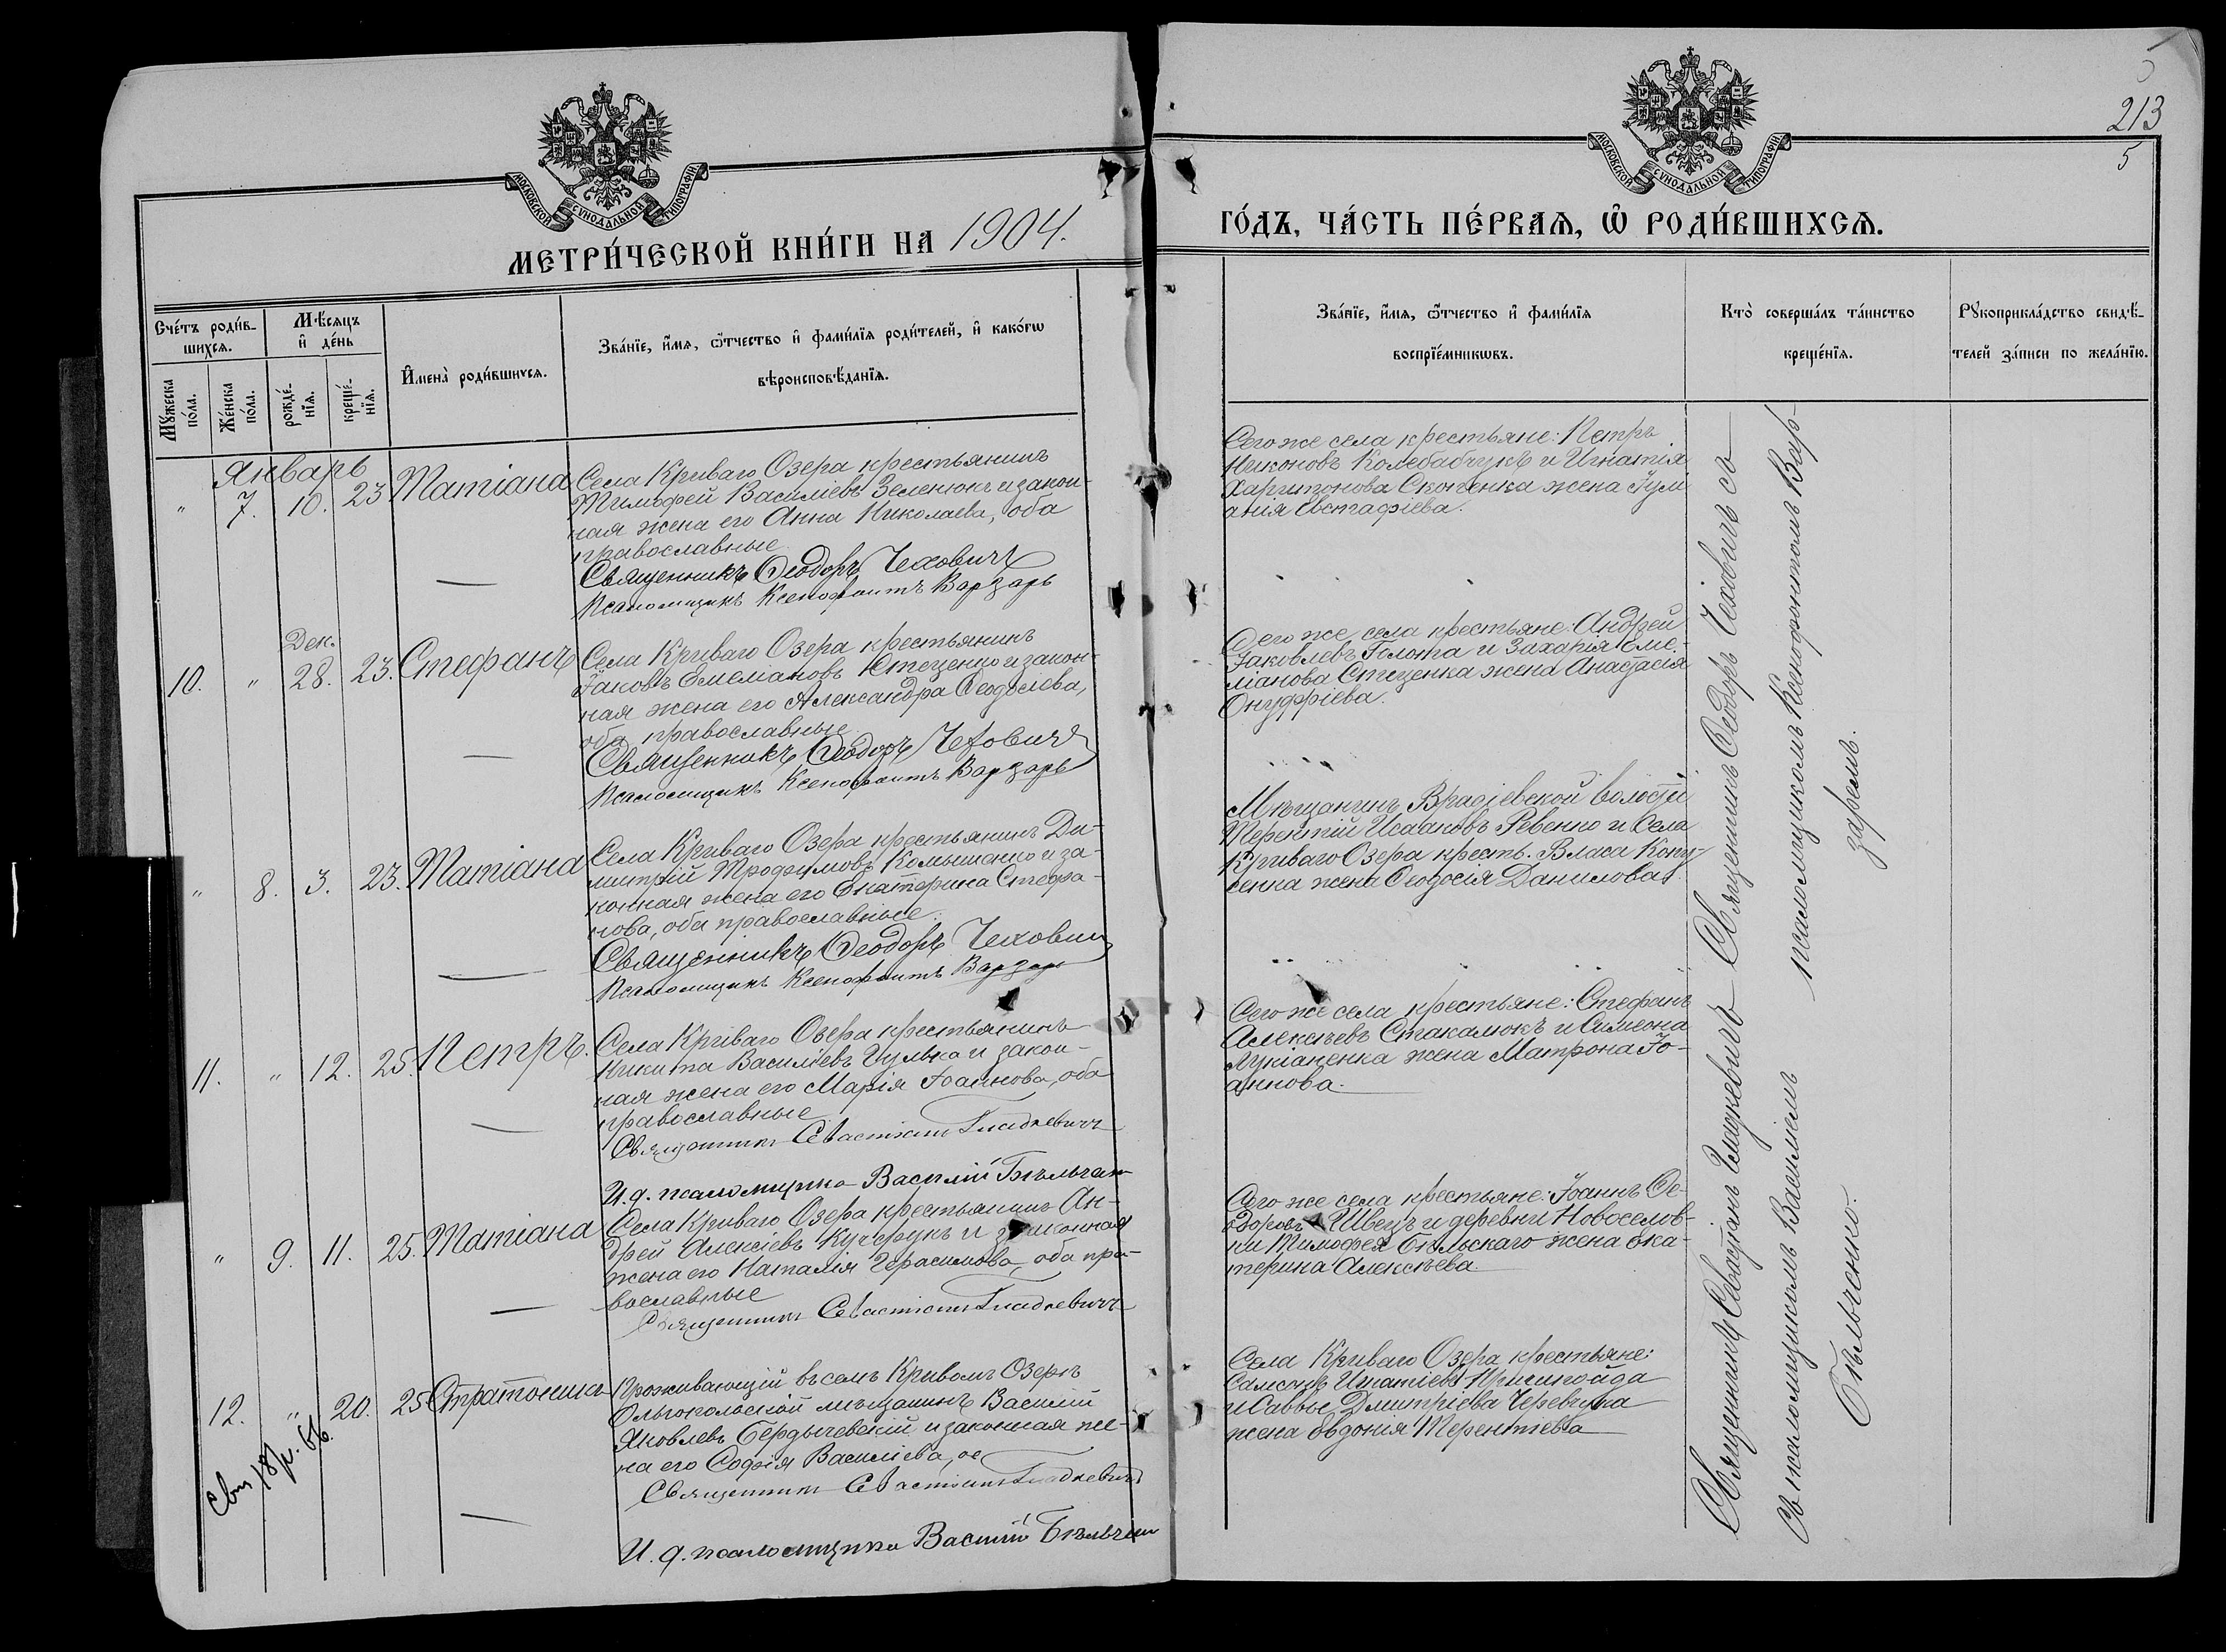 213
5
МОСКОВСКОЙ СѴНОДАЛЬНОЙ ТИПОГРАФІИ
МОСКОВСКОЙ СѴНОДАЛЬНОЙ ТИПОГРАФІИ
МЕТРИ́ЧЕСКОЙ КНИ́ГИ НА 1904.
ГО́ДЪ, ЧА́СТЬ ПЕ́РВАѦ, Ѡ҆ РОДИ́ВШИХСѦ.
Сче́тъ роди́в-
шихсѧ.
Мꙋ́жеска по́ла.
Же́нска по́ла.
Мѣ́сѧцъ и҆ де́нь
рожде́-
нїѧ.
креще́-
нїѧ.
И҆мена̀ роди́вшихсѧ.
Зва́нїе, и҆́мѧ, ѻ҆́тчество и҆ фами́лїѧ роди́телей, и҆ како́гѡ
вѣроисповѣ́данїѧ.
Зва́нїе, и҆́мѧ, ѻ҆́тчество и҆ фами́лїѧ
воспрїе́мникѡвъ.
Кто̀ соверша́лъ та́инство
креще́нїѧ.
Рꙋкоприкла́дство свидѣ́-
телей за́писи по жела́нїю.
Январь
" 7. 10. 23 Татіана
Села Криваго Озера крестьянинъ
Тимофей Василіевъ Зеленюкъ и закон-
ная жена его Анна Николаева, оба
православные
Священникъ Ѳеодоръ Чеховичъ
Псаломщикъ Ксенофонтъ Варзарь
Сего же села крестьяне: Петръ
Никоновъ Колебабчукъ и Игнатія
Харитонова Скопенка жена Іул
анія Евстафіева.
Дек.
10. " 28. 23. Стефанъ
Села Криваго Озера крестьянинъ
Іаковъ Емеліановъ Стеценко и закон-
ная жена его Александра Ѳеодосіева,
оба православные
Священникъ Ѳеодоръ Чеховичъ
Псаломщикъ Ксенофонтъ Варзарь
Сего же села крестьяне: Андрей
Іаковлевъ Голота и Захарія Еме-
ліанова Стеценка жена Анастасія
Онуфріева.
" 8. 3. 23. Татіана
Села Криваго Озера крестьянинъ Ди-
митрій Трофимовъ Комышенко и за-
конная жена его Екатерина Стефа-
нова, оба православные
Священникъ Ѳеодоръ Чеховичъ
Псаломщикъ Ксенофонтъ Варзарь
Мѣщанинъ Врадіевской волости
Терентій Исааковъ Ревенко и Села
Криваго Озера кресть. Власа
жена Ѳеодосія Данилова.
11. " 12. 25. Петръ.
Села Криваго Озера крестьянинъ
Никита Василіевъ и закон-
ная жена его Марія Іоаннова, оба
православные
Священникъ Севастіанъ Гладкевичъ
И. д. псаломщика Василій Бѣльчен
Сего же села крестьяне: Стефанъ
Алексѣевъ Стакалюкъ и Симеона
Лукіаненка жена Матрона Іо-
аннова.
" 9. 11. 25. Татіана
Села Криваго Озера крестьянинъ Ан-
дрей Алексіевъ Кучерукъ и законная
жена его Наталія Герасимова, оба пра-
вославные
Священникъ Севастіанъ Гладкевичъ
Сего же села крестьяне: Іоаннъ Ѳе-
одоровъ Швецъ и деревни Новоселов-
ки Тимофея Бѣльскаго жена Ека-
терина Алексѣева.
12. " 20. 25 Стратоникъ
Проживающій въ семъ Кривомъ Озерѣ
Ольгопольскій мѣщанинъ Василій
Яковлевъ Бердычевскій и законная же-
на его Софія Василіева,
Священникъ Севастіанъ Гладкевичъ
И. д. псаломщика Василій Бѣльчен
Села Криваго Озера крестьяне:
Самсонъ Игнатіевъ
и Саввы Дмитріева Черевика
жена Евдокія Терентіева
Священникъ Ѳеодоръ Чеховичъ съ
псаломщикомъ Ксенофонтомъ Вар-
заремъ.
Священникъ Севастіанъ Гладкевичъ
съ псаломщикомъ Василіемъ
Бѣльченко.